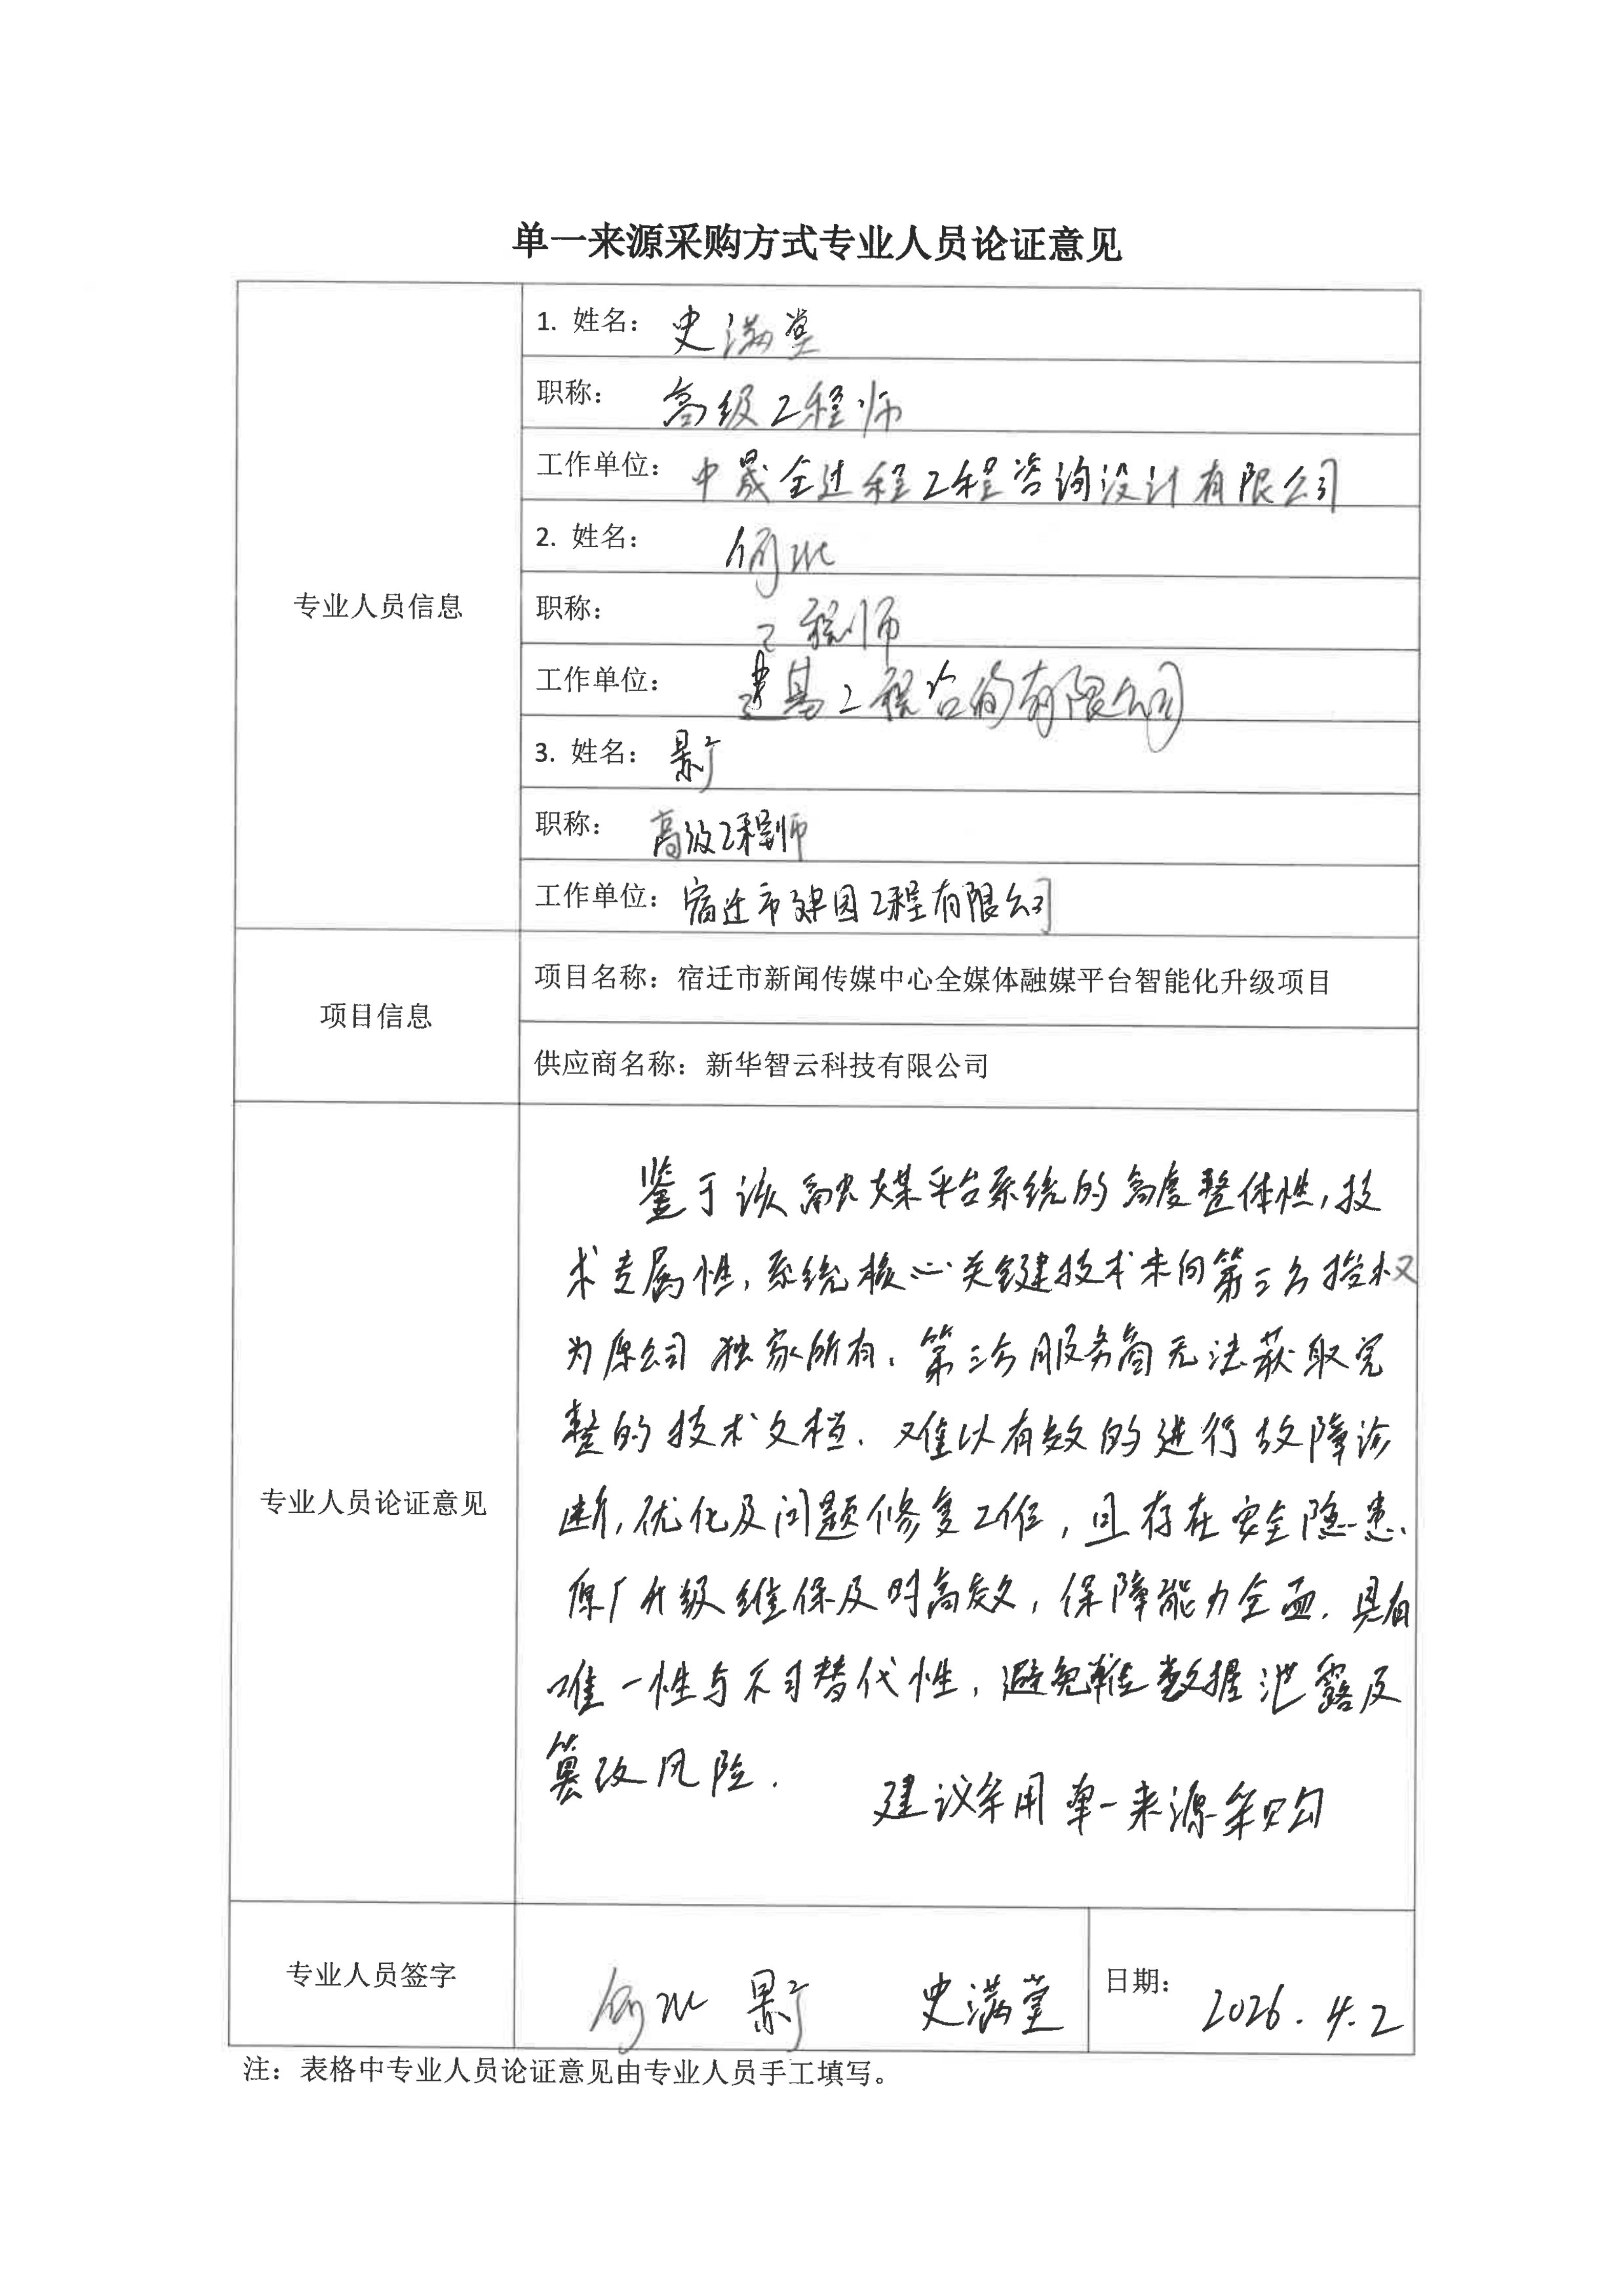 单一来源采购方式专业人员论证意见
专业人员信息
1. 姓名： 史满
职称： 高级工程师
工作单位： 中晟全过程工程咨询设计有限公司
2. 姓名： 何
职称： 工程师
工作单位： 建基工程咨询有限公司
3. 姓名：
职称： 高级工程师
工作单位： 宿迁市建园工程有限公司
项目信息
项目名称：宿迁市新闻传媒中心全媒体融媒平台智能化升级项目
供应商名称：新华智云科技有限公司
专业人员论证意见
鉴于该融媒平台系统的高度整体性，技
术专属性，系统核心关键技术未向第三方授权
为原公司独家所有。第三方服务商无法获取完
整的技术文档、难以有效的进行故障诊
断，优化及问题修复工作，且存在安全隐患、
原厂升级维保及时高效，保障能力全面．具有
唯一性与不可替代性，避免 数据泄露及
篡改风险．
建议采用单一来源采购
专业人员签字
何 史满
日期： 2026.4.2
注：表格中专业人员论证意见由专业人员手工填写。